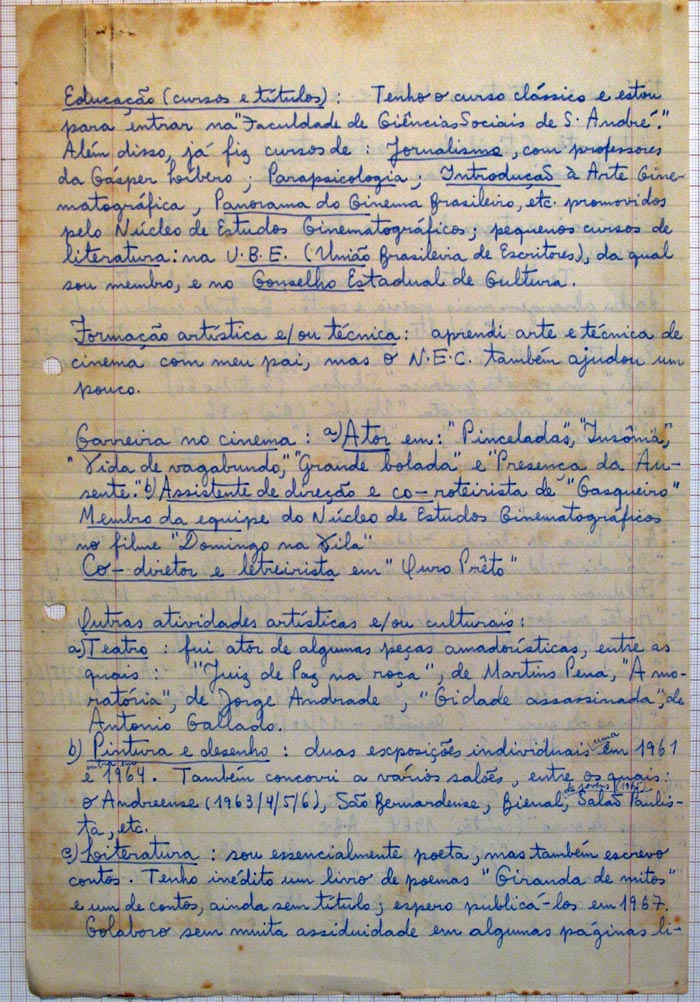 Educação (cursos e títulos): Tenho o curso clássico e estou
para entrar na "Faculdade de Ciências Sociais de S. André".
Além disso, já fiz cursos de: Jornalismo, com professores
da Cásper Líbero; Parapsicologia, Introdução à Arte Cine-
matográfica, Panorama do Cinema Brasileiro, etc. promovidos
pelo Núcleo de Estudos Cinematográficos; pequenos cursos de
literatura: na U.B.E. (União Brasileira de Escritores), da qual
sou membro, e no Conselho Estadual de Cultura.
Formação artística e/ou técnica: aprendi arte e técnica de
cinema com meu pai, mas o N.E.C. também ajudou um
pouco.
Carreira no cinema: a) Ator em: "Pinceladas", "Insônia",
"Vida de vagabundo", "Grande bolada" e "Presença da Au-
sente." b) Assistente de direção e co-roteirista de "Casqueiro"
Membro da equipe do Núcleo de Estudos Cinematográficos
no filme "Domingo na Vila"
Co-diretor e letreirista em "Ouro Prêto"
Outras atividades artísticas e/ou culturais:
a) Teatro: fui ator de algumas peças amadorísticas, entre as
quais: "Juiz de Paz na roça", de Martins Pena, "A mo-
ratória", de Jorge Andrade, "Cidade assassinada", de
Antonio Callado.
b) Pintura e desenho: duas exposições individuais uma em 1961
e outra em 1964. Também concorri a vários salões, entre os quais:
o Andreense (1963/4/5/6), São Bernardense, Bienal de jovens (1964), Salão Paulis-
ta, etc.
c) Literatura: sou essencialmente poeta, mas também escrevo
contos. Tenho inédito um livro de poemas "Ciranda de mitos"
e um de contos, ainda sem título; espero publicá-los em 1967.
Colaboro sem muita assiduidade em algumas páginas li-